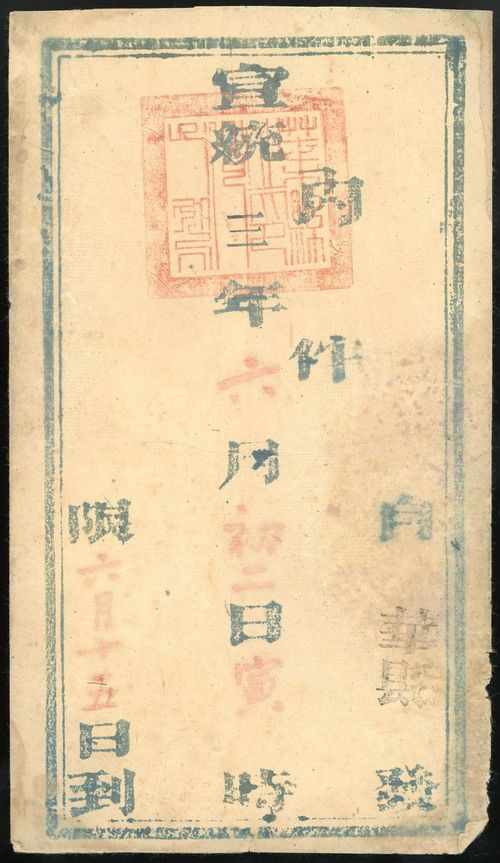 自 縣 發
內件
宣統三年六月初二日寅時
限六月十五日到